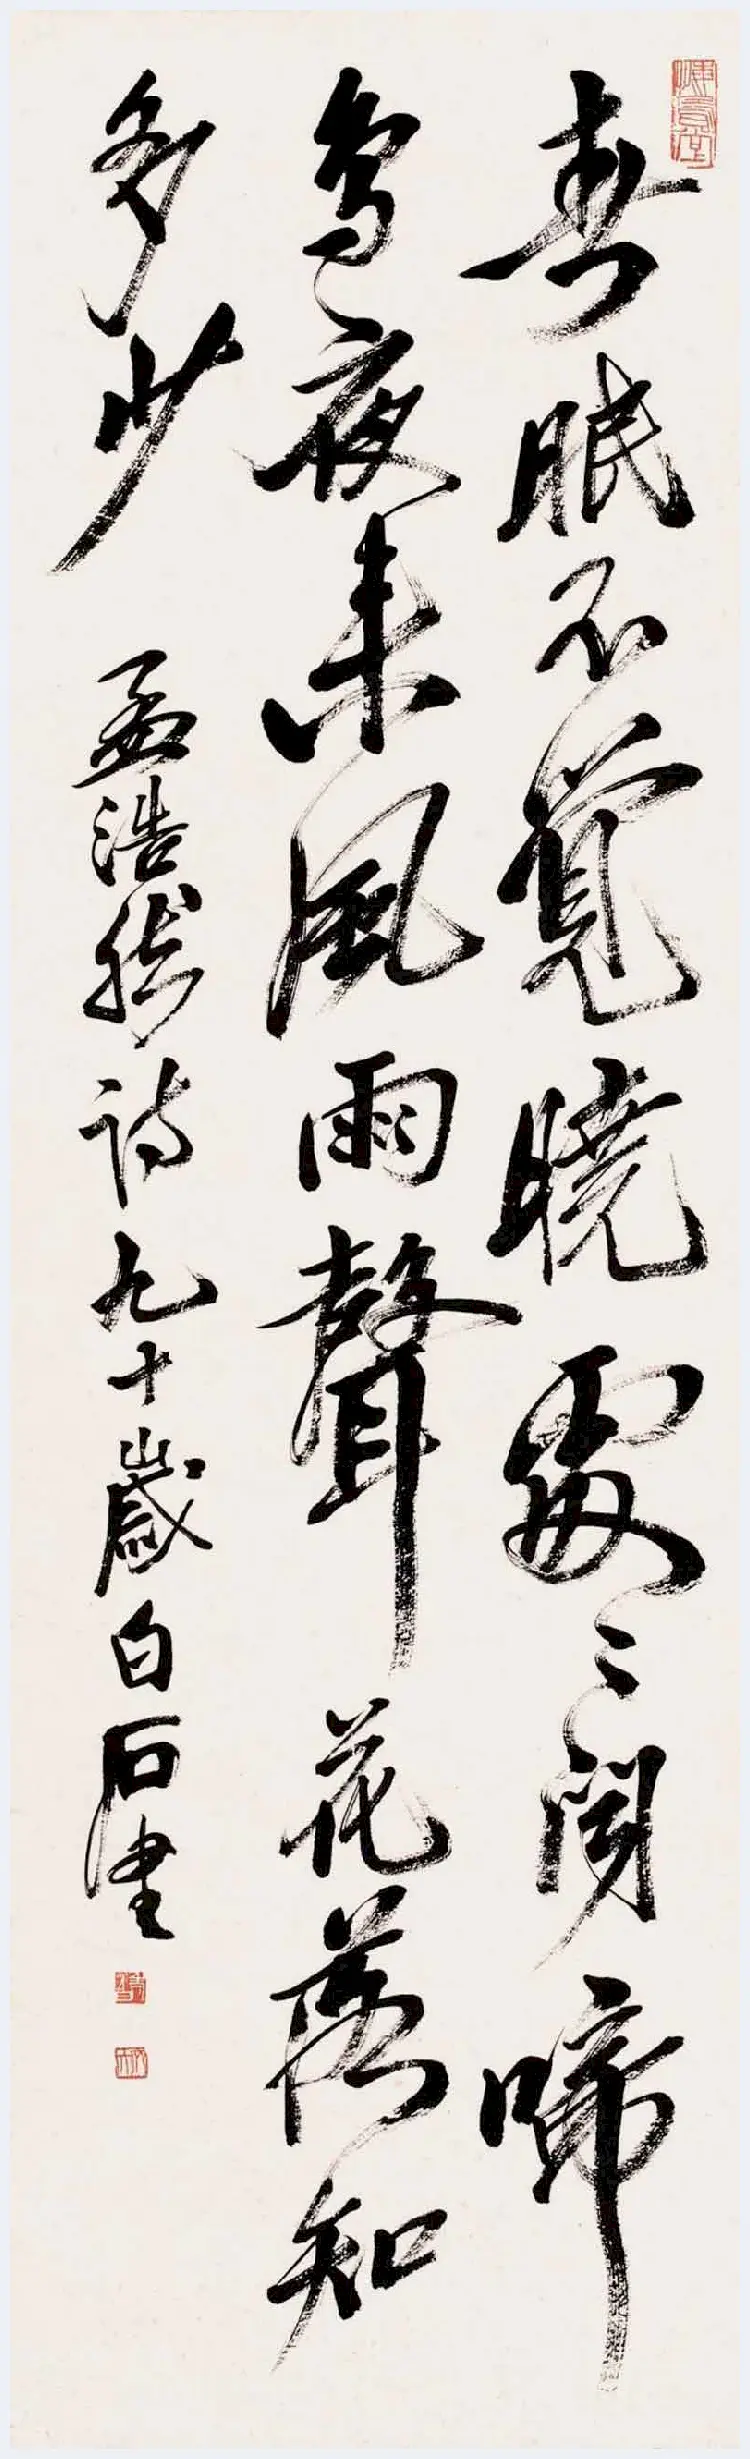 春眠不覺曉處〻聞啼
鳥夜来風雨聲花落知
多少 孟浩然詩九十歲白石書